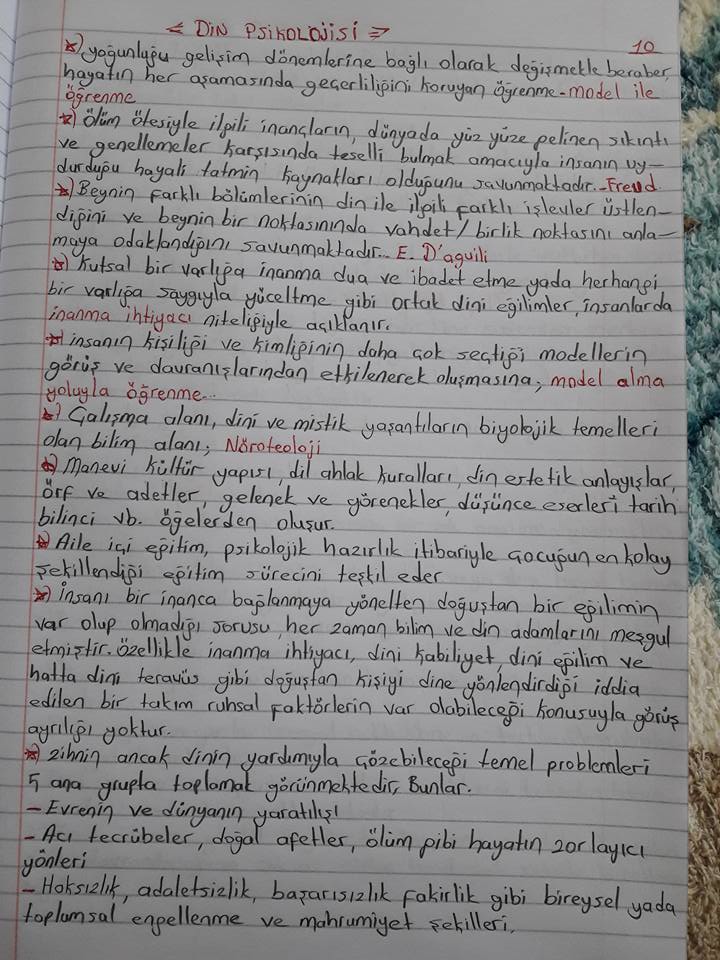 < DİN PSİKOLOJİSİ >
10
*) yoğunluğu gelişim dönemlerine bağlı olarak değişmekle beraber,
hayatın her aşamasında geçerliliğini koruyan öğrenme-model ile
öğrenme
*) Ölüm ötesiyle ilgili inançların, dünyada yüz yüze gelinen sıkıntı
ve genellemeler karşısında teselli bulmak amacıyla insanın uy-
durduğu hayali tatmin kaynakları olduğunu savunmaktadır.-Freud
*) Beynin farklı bölümlerinin din ile ilgili farklı işlevler üstlen-
diğini ve beynin bir noktasınında vahdet/birlik noktasını anla-
maya odaklandığını savunmaktadır... E. D'aguili
*) Kutsal bir varlığa inanma dua ve ibadet etme yada herhangi
bir varlığa saygıyla yüceltme gibi ortak dini eğilimler, insanlarda
inanma ihtiyacı niteliğiyle açıklanır.
*) insanın kişiliği ve kimliğinin daha çok seçtiği modellerin
görüş ve davranışlarından etkilenerek oluşmasına; model alma
yoluyla öğrenme...
*) Çalışma alanı, dini ve mistik yaşantıların biyolojik temelleri
olan bilim alanı; Nöroteoloji
*) Manevi kültür yapısı, dil ahlak kuralları, din estetik anlayışlar,
örf ve adetler, gelenek ve görenekler, düşünce eserleri tarih
bilinci vb. öğelerden oluşur.
*) Aile içi eğitim, psikolojik hazırlık itibariyle çocuğun en kolay
şekillendiği eğitim sürecini teşkil eder
*) İnsanı bir inanca bağlanmaya yönelten doğuştan bir eğilimin
var olup olmadığı sorusu, her zaman bilim ve din adamlarını meşgul
etmiştir. Özellikle inanma ihtiyacı, dini kabiliyet, dini eğilim ve
hatta dini teravüs gibi doğuştan kişiyi dine yönlendirdiği iddia
edilen bir takım ruhsal faktörlerin var olabileceği konusuyla görüş
ayrılığı yoktur.
*) zihnin ancak dinin yardımıyla çözebileceği temel problemleri
5 ana grupta toplamak görünmektedir, Bunlar.
- Evrenin ve dünyanın yaratılışı
- Acı tecrübeler, doğal afetler, ölüm gibi hayatın zorlayıcı
yönleri
- Haksızlık, adaletsizlik, başarısızlık fakirlik gibi bireysel yada
toplumsal engellenme ve mahrumiyet şekilleri,